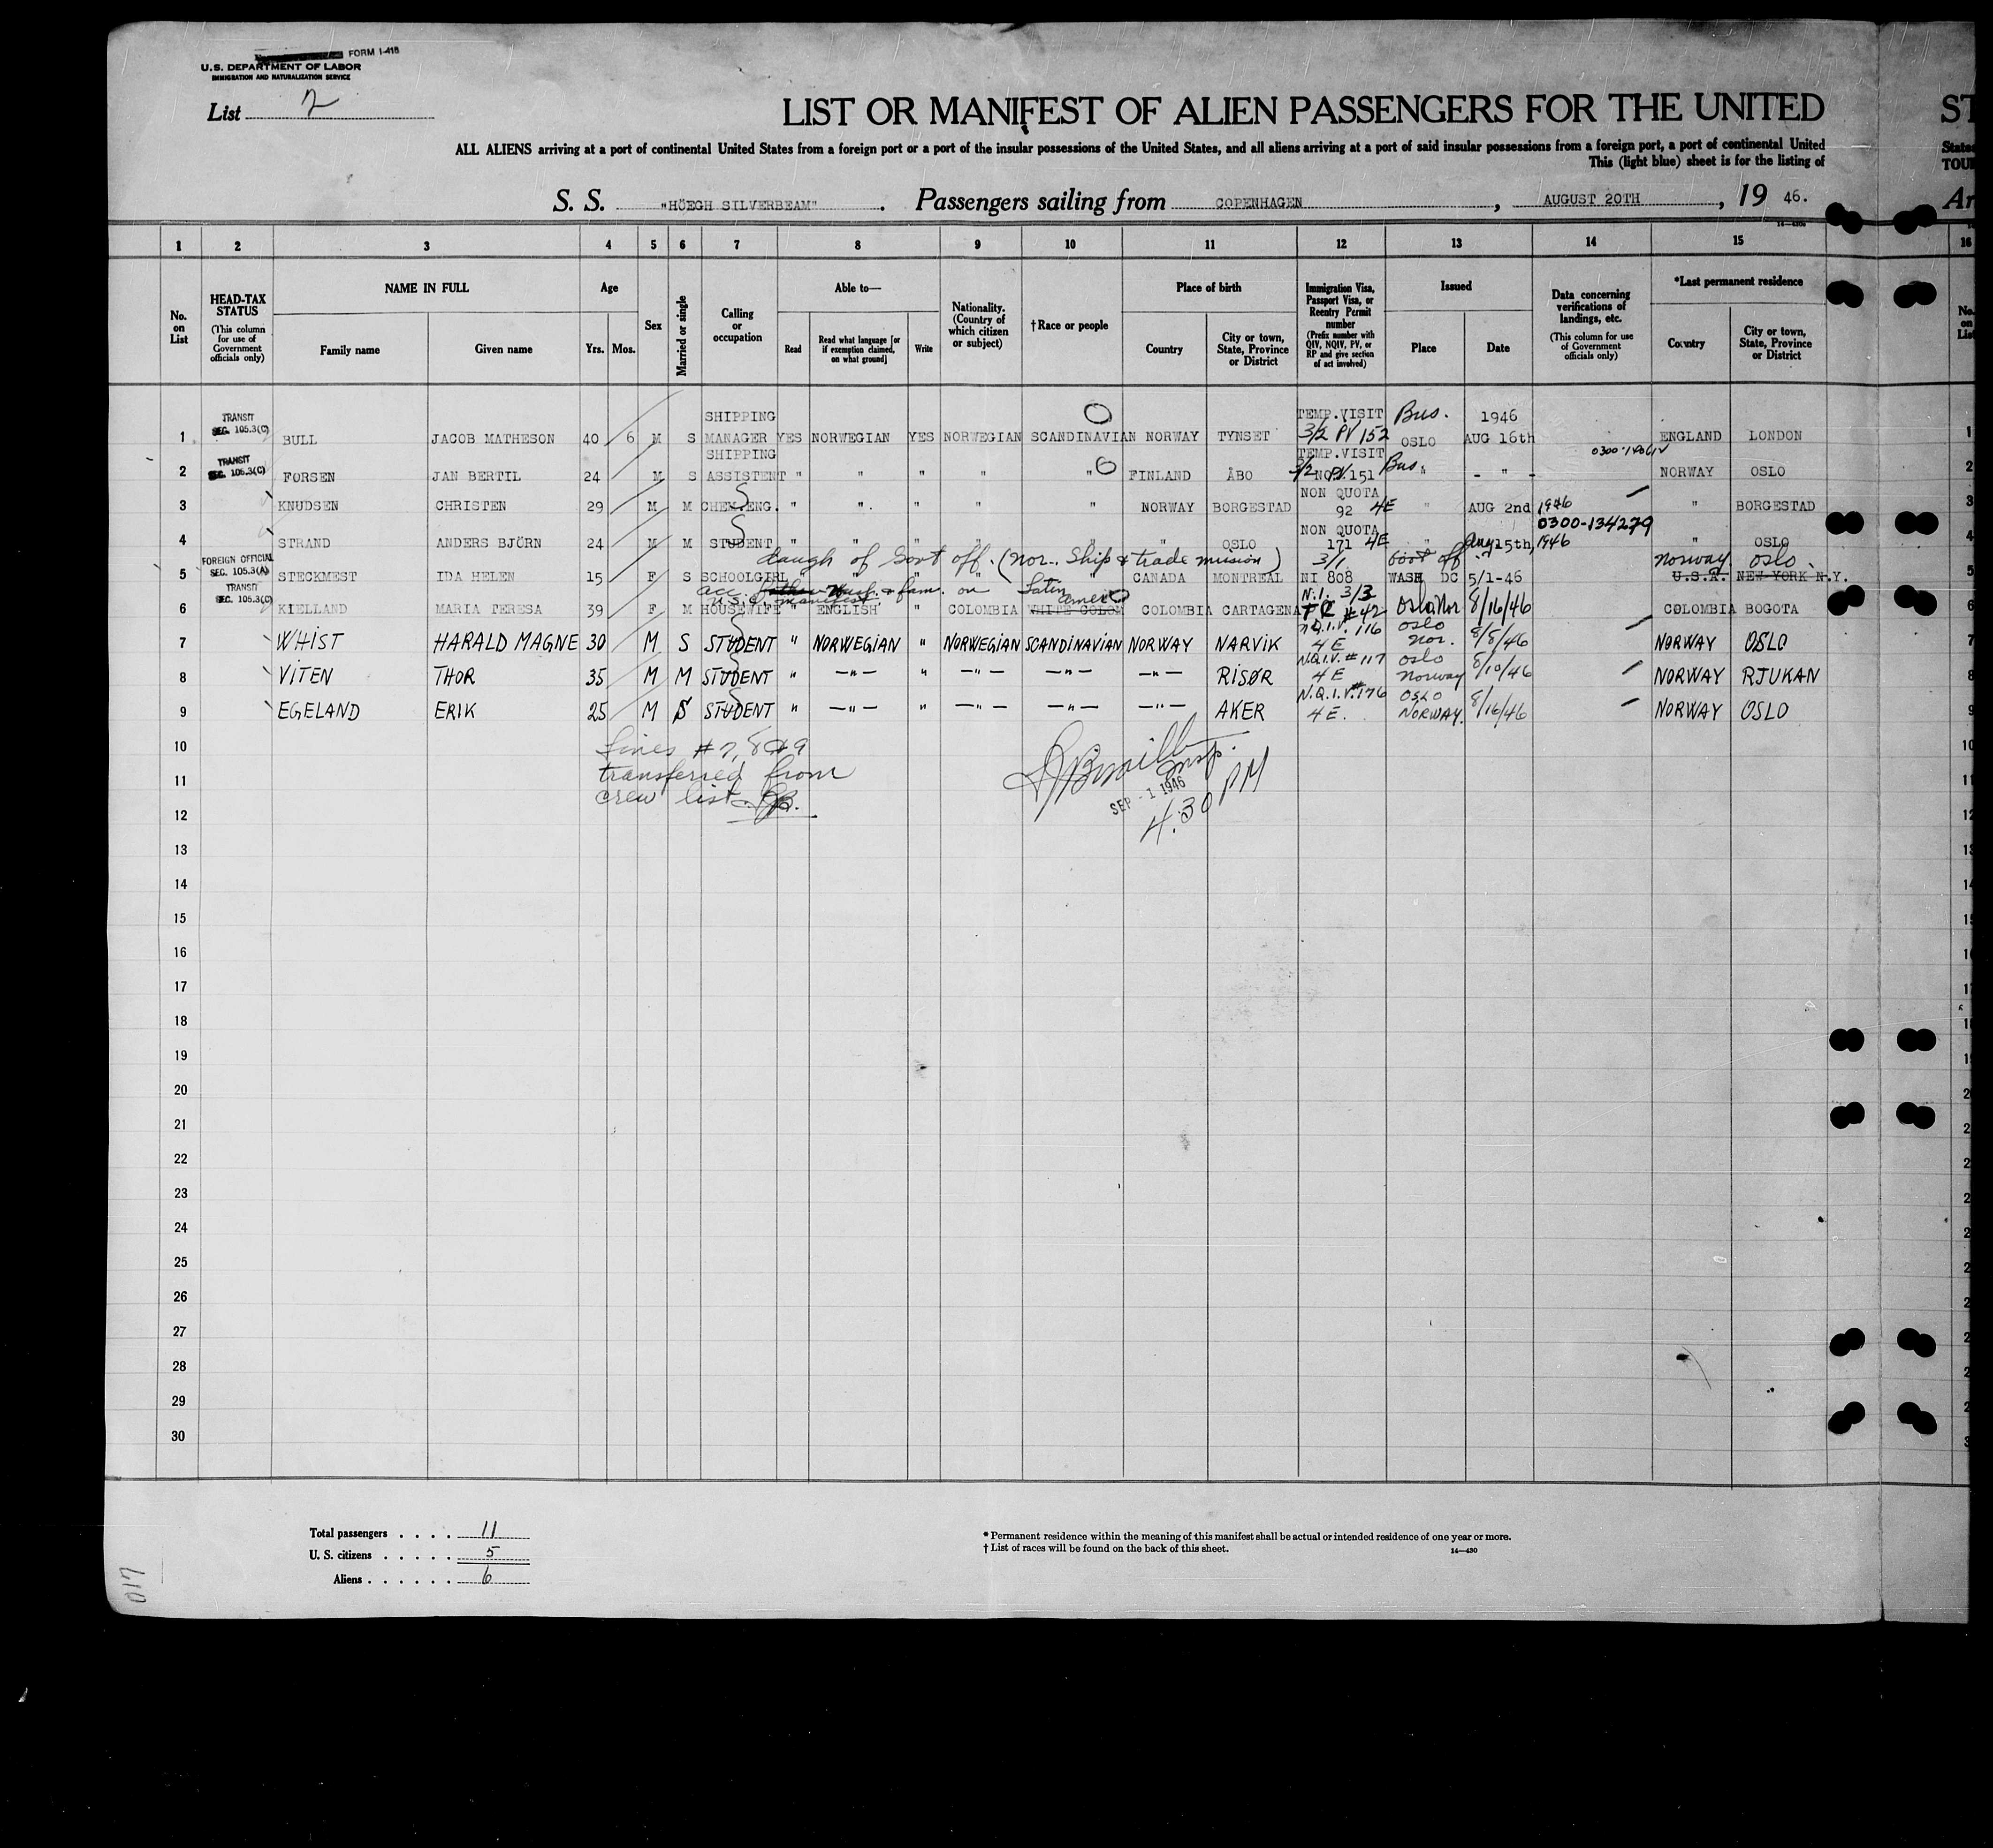 FORM I-415
U.S. DEPARTMENT OF LABOR
IMMIGRATION AND NATURALIZATION SERVICE
List 2
LIST OR MANIFEST OF ALIEN PASSENGERS FOR THE UNITED ST
ALL ALIENS arriving at a port of continental United States from a foreign port or a port of the insular possessions of the United States, and all aliens arriving at a port of said insular possessions from a foreign port, a port of continental United States
This (light blue) sheet is for the listing of TOU
S. S. "HÖEGH SILVERBEAM". Passengers sailing from COPENHAGEN, AUGUST 20TH, 19 46. Ar
1 2 3 4 5 6 7 8 9 10 11 12 13 14 15 16
No. on List
HEAD-TAX STATUS (This column for use of Government officials only)
NAME IN FULL
Family name
Given name
Age
Yrs. Mos.
Sex
Married or single
Calling or occupation
Able to—
Read
Read what language [or if exemption claimed, on what ground]
Write
Nationality. (Country of which citizen or subject)
†Race or people
Place of birth
Country
City or town, State, Province or District
Immigration Visa, Passport Visa, or Reentry Permit number (Prefix number with QIV, NQIV, PV, or RP and give section of act involved)
Issued
Place
Date
Data concerning verifications of landings, etc. (This column for use of Government officials only)
*Last permanent residence
Country
City or town, State, Province or District
No. on List
1 TRANSIT SEC. 105.3(C) BULL JACOB MATHESON 40 6 M S SHIPPING MANAGER YES NORWEGIAN YES NORWEGIAN SCANDINAVIAN NORWAY TYNSET TEMP.VISIT 3/2 PV 152 Bus. OSLO 1946 AUG 16th ENGLAND LONDON 1
2 TRANSIT SEC. 105.3(C) FORSEN JAN BERTIL 24 M S SHIPPING ASSISTENT " " " " " FINLAND ÅBO TEMP.VISIT 3/2 PV 151 Bus. " - " - NORWAY OSLO 2
3 KNUDSEN CHRISTEN 29 M M CHEM.ENG. " " " " " NORWAY BORGESTAD NON QUOTA 92 4E " AUG 2nd 1946 " BORGESTAD 3
0300-134279
4 STRAND ANDERS BJÖRN 24 M M STUDENT " " " " " " OSLO NON QUOTA 171 4E " Aug 15th, 1946 " OSLO 4
daugh of Govt off. (Nor. Ship & trade mission) 3/1 Govt off Norway Oslo
5 FOREIGN OFFICIAL SEC. 105.3(A) STECKMEST IDA HELEN 15 F S SCHOOLGIRL " " " " " CANADA MONTREAL NI 808 WASH DC 5/1-46 U.S.A. NEW YORK N.Y. 5
acc. Husf. & fam. on U.S.C. manifest. Latin Amer.
6 TRANSIT SEC. 105.3(C) KIELLAND MARIA TERESA 39 F M HOUSEWIFE " ENGLISH " COLOMBIA WHITE COLOM COLOMBIA CARTAGENA N.I. 3/3 #42 Oslo Nor 8/16/46 COLOMBIA BOGOTA 6
7 WHIST HARALD MAGNE 30 M S STUDENT " NORWEGIAN " NORWEGIAN SCANDINAVIAN NORWAY NARVIK N.Q.I.V. 116 4E Oslo Nor. 8/8/46 NORWAY OSLO 7
8 VITEN THOR 35 M M STUDENT " —"— " —"— —"— —"— RISØR N.Q.I.V. #117 4E Oslo Norway 8/10/46 NORWAY RJUKAN 8
9 EGELAND ERIK 25 M S STUDENT " —"— " —"— —"— —"— AKER N.Q.I.V. #176 4E. OSLO NORWAY. 8/16/46 NORWAY OSLO 9
10 Lines #7, 8 & 9
11 transferred from
12 crew list.
Insp.
SEP - 1 1946
4.30 PM
13
14
15
16
17
18
19
20
21
22
23
24
25
26
27
28
29
30
Total passengers . . . . 11
U. S. citizens . . . . . 5
Aliens . . . . . . 6
* Permanent residence within the meaning of this manifest shall be actual or intended residence of one year or more.
† List of races will be found on the back of this sheet.
14—430